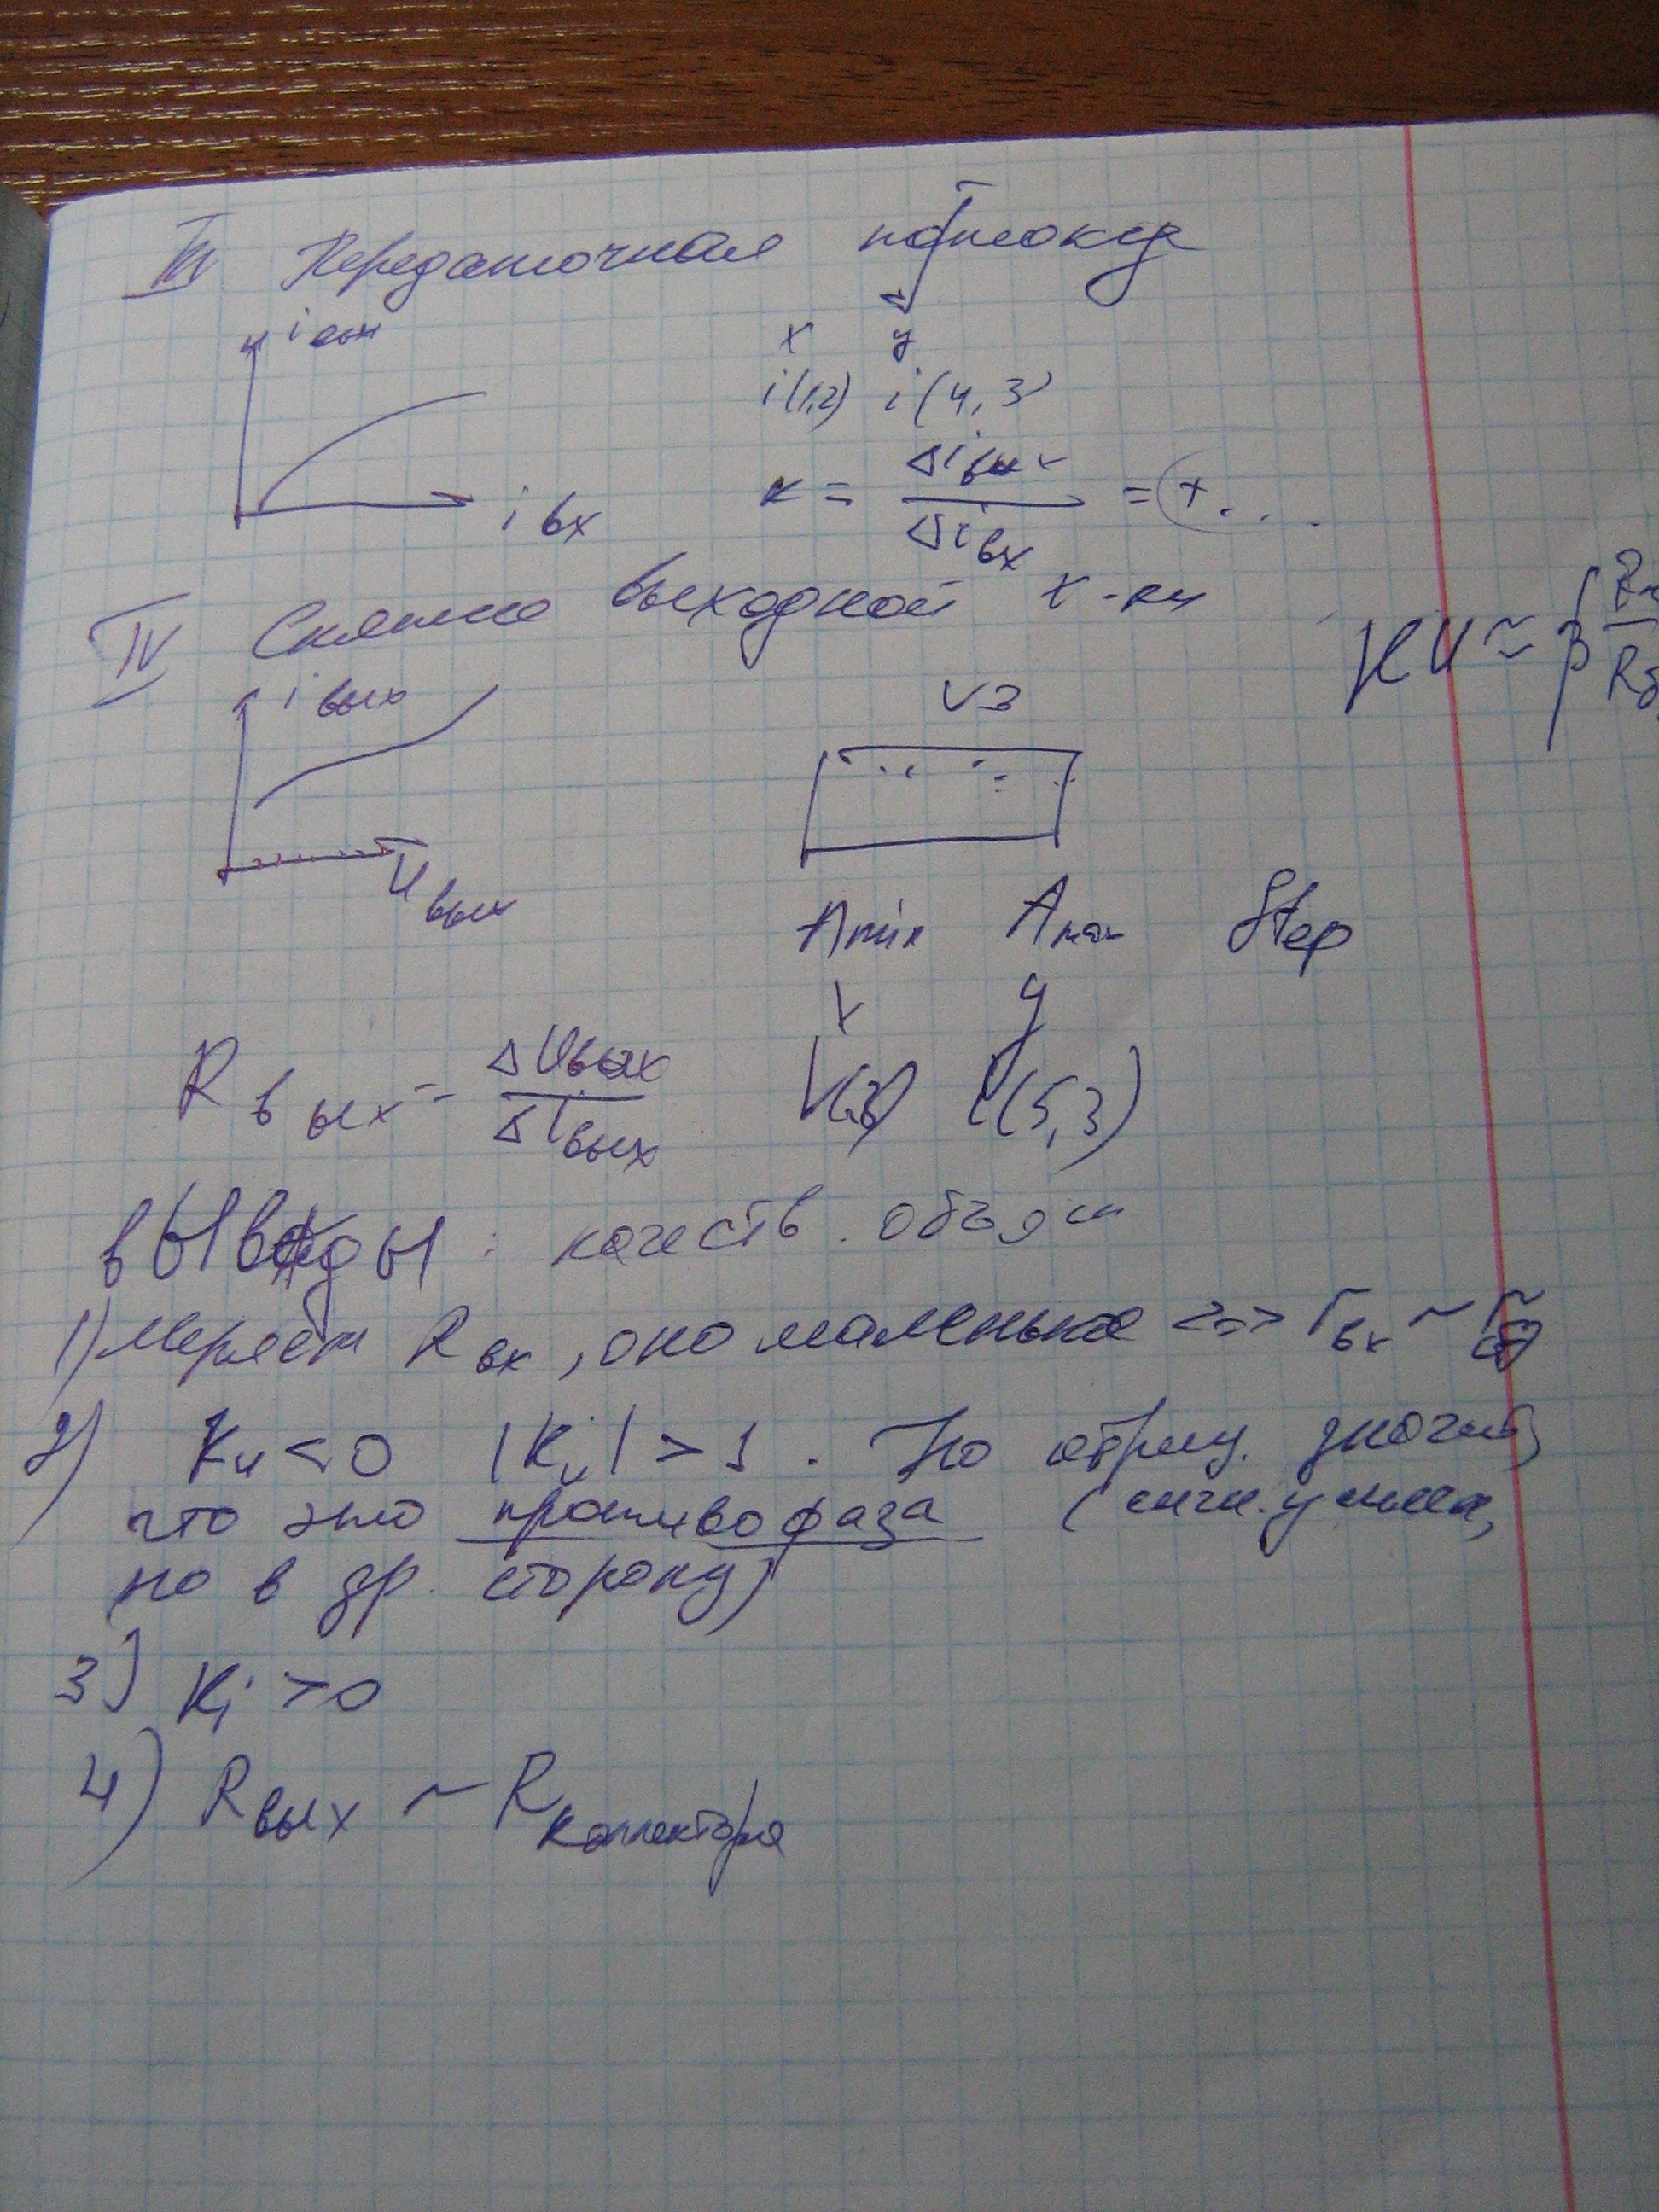 III Передаточная по току
i вых
x y
i(1,2) i(4,3)
i вх
к = Δiвых / Δiвх = + ...
IV Снятие выходной х-ки
KU ≈ β
i вых
V3
U вых
Amin Amax Step
x y
Rвых = ΔUвых / ΔIвых V(3) i(5,3)
выводы : качеств. объясн
1) Меряем Rвх, оно маленькое <=> rвх ~
2) Ku < 0 |Ku| > 1 . Но отриц. значит,
что это противофаза (сигн. усилен,
но в др. сторону)
3) Ki > 0
4) Rвых ~ Rколлектора